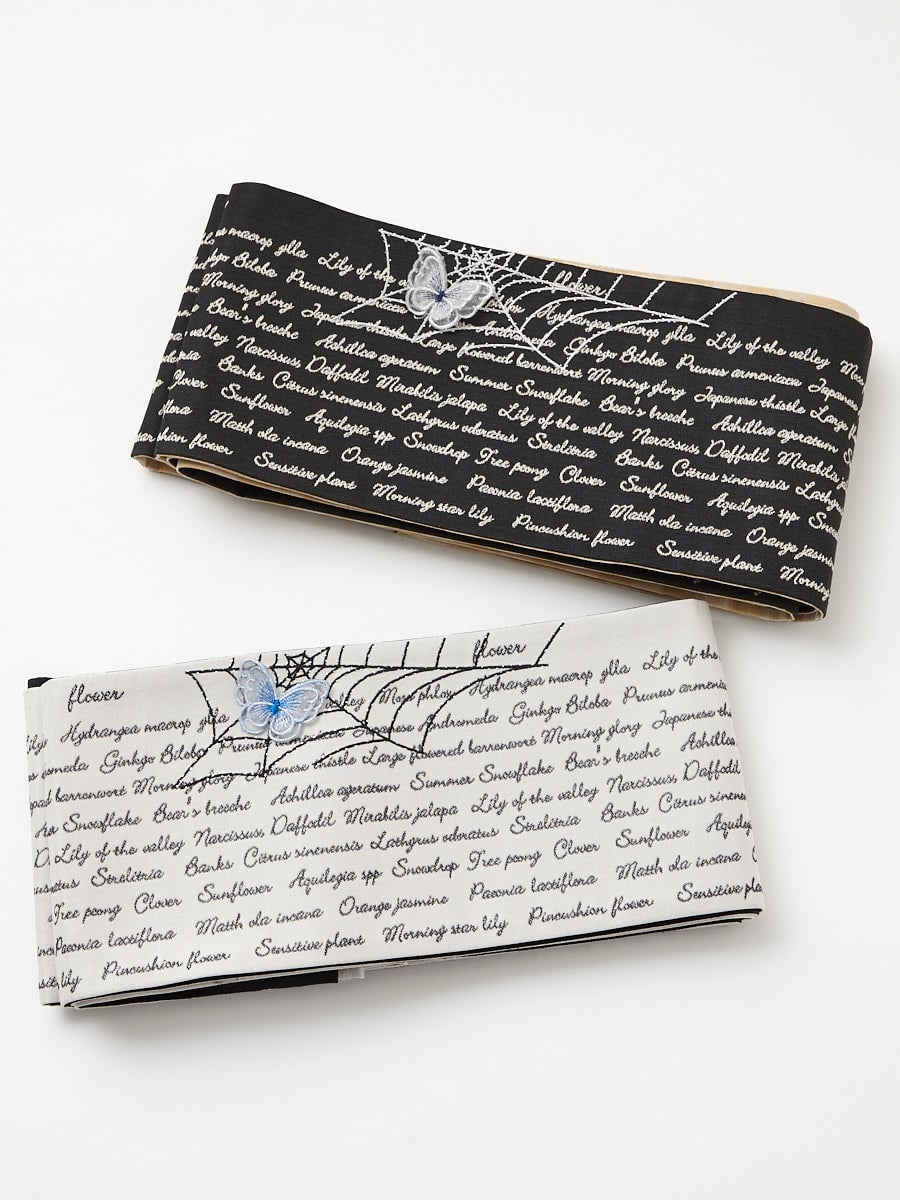 macrop ylla Lily of the
Biloba Prunus armeniaca flower
Morning glory Japanese thistle Hydrangea macrop ylla Lily of the valley
Bear's breeche Achillea ageratum Large flowered barrenwort Ginkgo Biloba Prunus armeniaca Japanese
valley, Narcissus, Daffodil Mirabilis jalapa Summer Snowflake Morning glory Japanese thistle Large
Banks Citrus sinensis Lathyrus odoratus Lily of the valley Bear's breeche Achillea ageratum
Clover Sunflower Aquilegia spp Snowdrop Strelitria Narcissus, Daffodil Mirabilis
flora Matth ola incana Orange jasmine Tree peony Clover Banks Citrus sinensis Lathyrus
flower Sensitive plant Morning star lily Paeonia lactiflora Sunflower Aquilegia spp
Pincushion flower Matth ola incana Orange
Sensitive plant Morning
flower flower
Hydrangea macrop ylla valley Moss phlox Hydrangea macrop ylla Lily of the
Ginkgo Biloba Prunus armeniaca Japanese Andromeda Ginkgo Biloba Prunus
barrenwort Morning glory Japanese thistle Large flowered barrenwort Morning glory Japanese
Snowflake Bear's breeche Achillea ageratum Summer Snowflake Bear's breeche Achillea
Lily of the valley Narcissus, Daffodil Mirabilis jalapa Lily of the valley Narcissus, Daffodil
Strelitria Banks Citrus sinensis Lathyrus odoratus Strelitria Banks Citrus
Tree peony Clover Sunflower Aquilegia spp Snowdrop Tree peony Clover Sunflower
Paeonia lactiflora Matth ola incana Orange jasmine Paeonia lactiflora Matth ola incana
lily Pincushion flower Sensitive plant Morning star lily Pincushion flower Sensitive